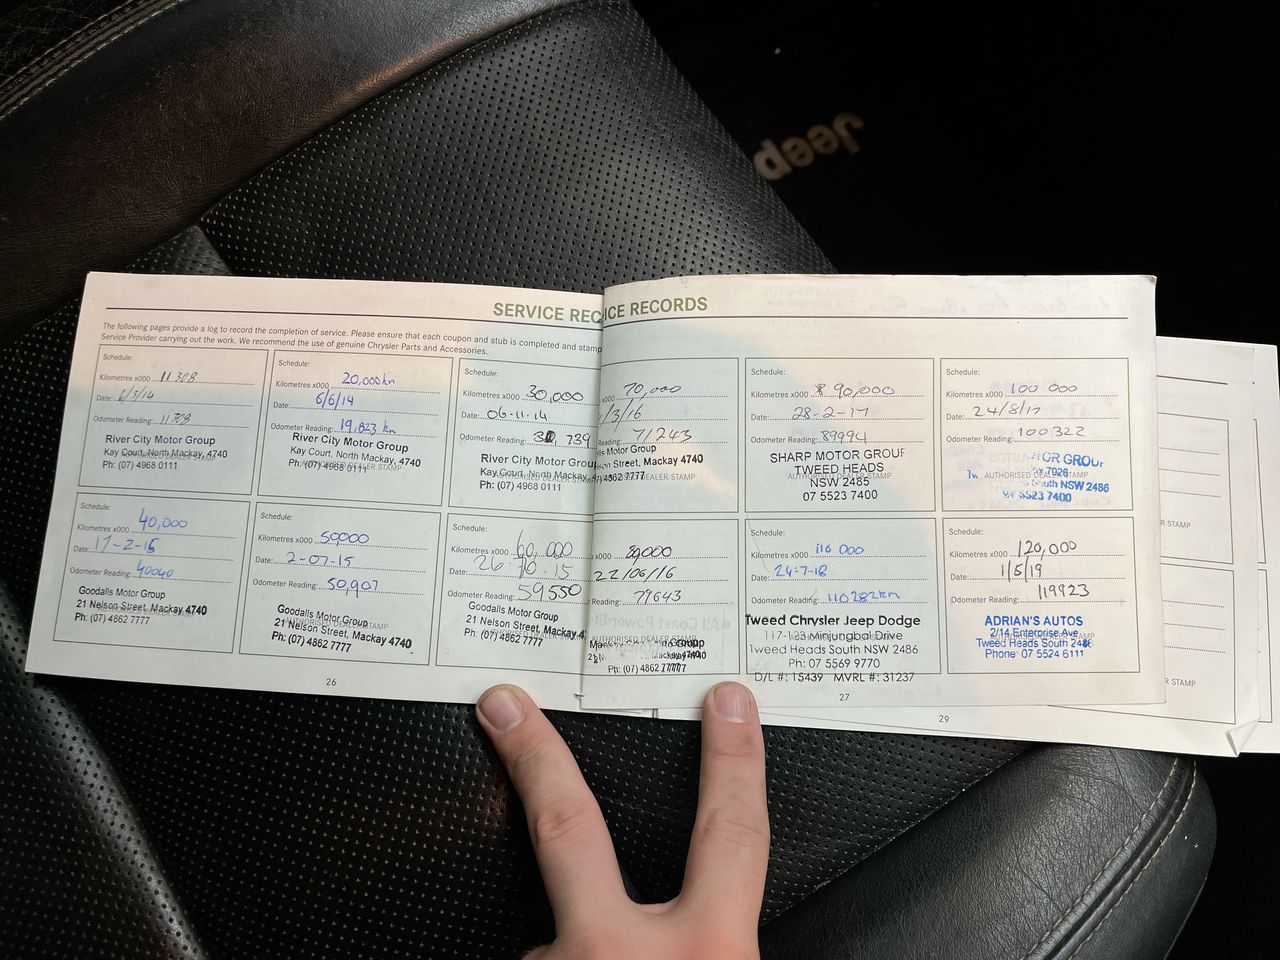 Jeep
SERVICE REC
The following pages provide a log to record the completion of service. Please ensure that each coupon and stub is completed and stamp
Service Provider carrying out the work. We recommend the use of genuine Chrysler Parts and Accessories.
Schedule:
Kilometres x000 11 308
Date:
Odometer Reading: 11308
River City Motor Group
Kay Court, North Mackay 4740
Ph: (07) 4968 0111
Schedule:
Kilometres x000 20,000km
Date: 6/6/14
Odometer Reading: 19,823 km
River City Motor Group
Kay Court, North Mackay, 4740
Ph: (07) 4968 0111
Schedule:
Kilometres x000 30,000
Date: 06-11-14
Odometer Reading: 739
River City Motor Grou
Kay Court, North Mackay
Ph: (07) 4968 0111
40,000
Kilometres x000
Date: 17-2-15
Odometer Reading: 40040
Goodalls Motor Group
21 Nelson Street, Mackay 4740
Ph: (07) 4862 7777
Schedule:
Kilometres x000 50000
Date: 2-07-15
Odometer Reading: 50,907
Goodalls Motor Group
21 Nelson Street, Mackay 4740
Ph: (07) 4862 7777
Schedule:
Kilometres x000 60,000
Date: 26 10 15
Odometer Reading: 59550
Goodalls Motor Group
21 Nelson Street, Mackay 4
Ph: (07) 4862 7777
26
ICE RECORDS
x000 70,000
/3/16
Reading: 71243
Motor Group
son Street, Mackay 4740
4862 7777
AUTHORISED DEALER STAMP
Schedule:
Kilometres x000 90,000
Date: 28-2-17
Odometer Reading: 89994
SHARP MOTOR GROUP
TWEED HEADS
AUTHORISED DEALER STAMP
NSW 2485
07 5523 7400
Schedule:
Kilometres x000 100 000
Date: 24/8/17
Odometer Reading: 100322
TOR GROUP
AUTHORISED DEALER STAMP
7026
South NSW 2486
07 5523 7400
x000 80000
22/06/16
Reading: 79643
AUTHORISED DEALER STAMP
Ph: (07) 4862 7777
Schedule:
Kilometres x000 110 000
Date: 24-7-18
Odometer Reading: 110282km
Tweed Chrysler Jeep Dodge
117-123 Minjungbal Drive
Tweed Heads South NSW 2486
Ph: 07 5569 9770
D/L #: 15439 MVRL #: 31237
Schedule:
Kilometres x000 120,000
Date: 1/5/19
Odometer Reading: 119923
ADRIAN'S AUTOS
2/14 Enterprise Ave
Tweed Heads South 2486
Phone: 07 5524 6111
27
R STAMP
R STAMP
29